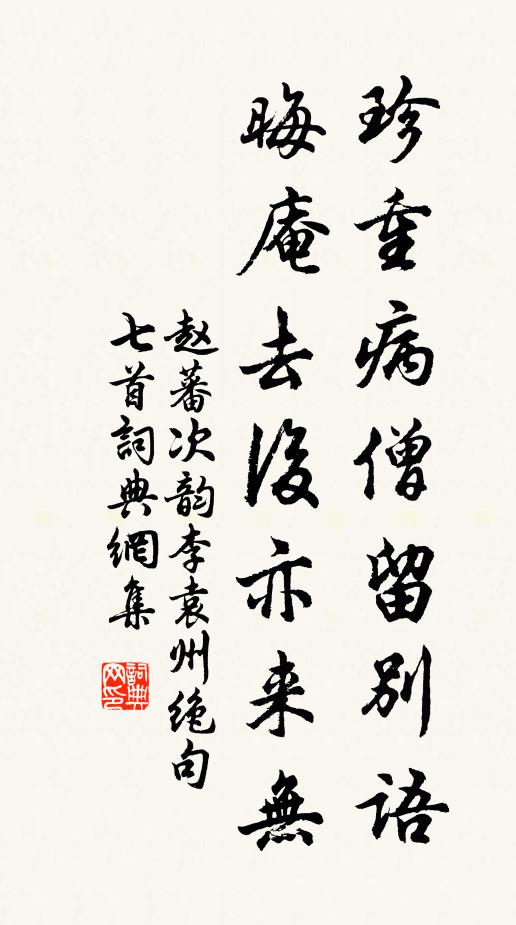 珍重病僧留别語
晦庵去後亦来無
赵蕃次韵李袁州绝句
七首詞典網集
詞典
网印